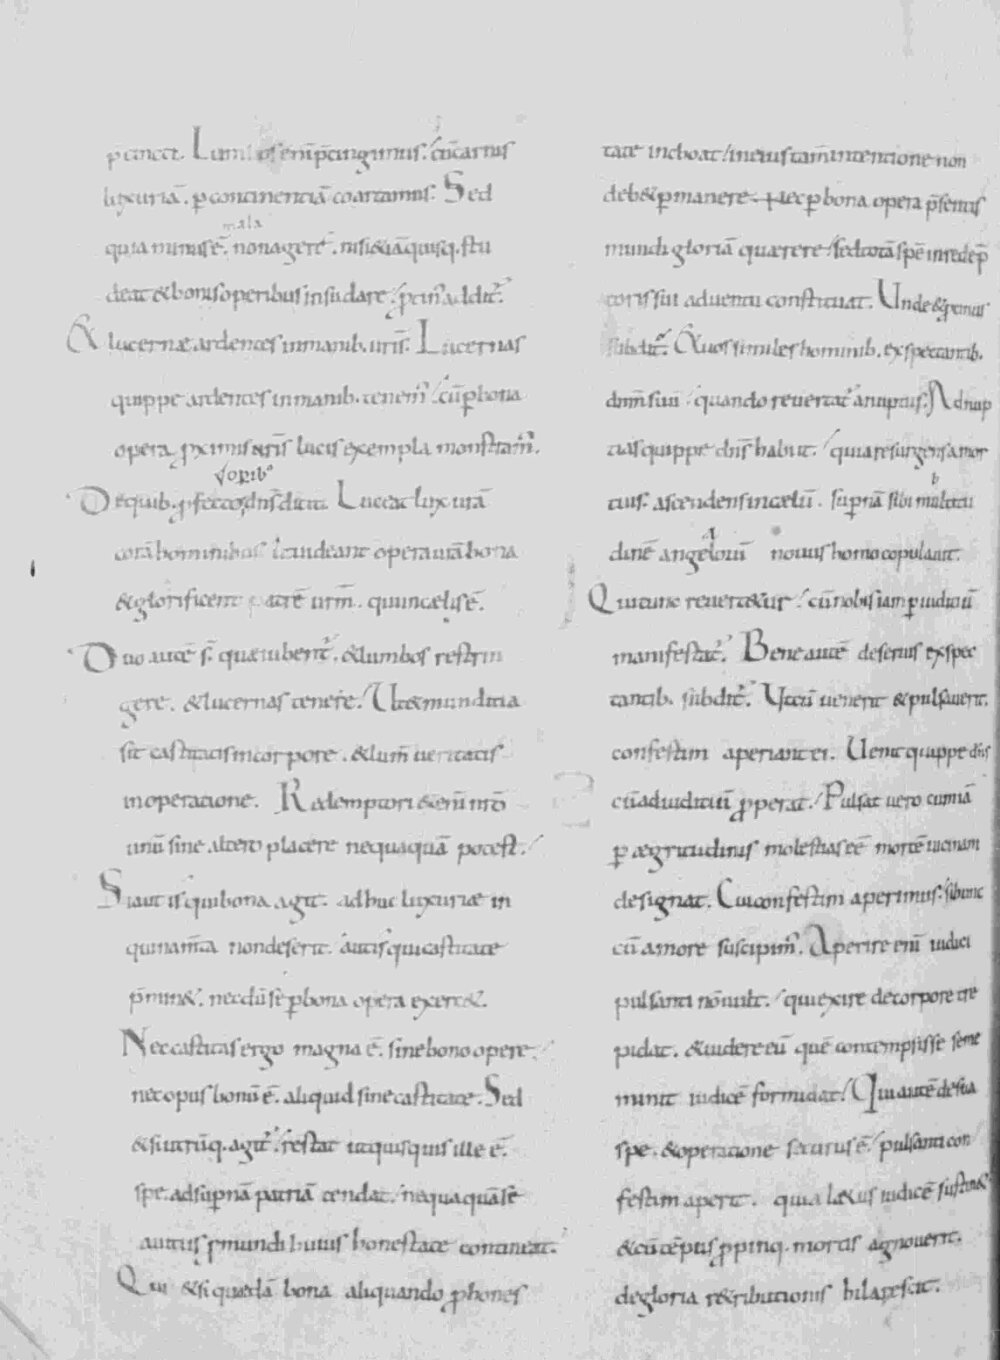 p̄cinct. Lumbos eni᷈ p̄cingimus. cu᷈ carnis
luxuria᷈. p continentia᷈ coartamus. Sed
mala
quia minus e᷈. non agere. nisi & ia᷈ quisq. stu
deat & bonis operibus insudare. ptin᷈ addit᷈.
& lucernae ardentes in manib. uris᷈. Lucernas
quippe ardentes in manib. tenem᷈. cu᷈ p bona
opera pximis nris᷈ lucis exempla monstram᷈.
De quib. pfecto dn̄s dicit. Luceat lux ura᷈
cora᷈ hominibus ut uideant opera ura᷈ bona
& glorificent patre᷈ urm᷈. qui in caelis e᷈.
Duo aute᷈ s̄. quae iubent᷈. & lumbos restrin
gere. & lucernas tenere. Ut & munditia
sit castitatis in corpore. & lum᷈ ueritatis
in operatione. Redemptori & eni᷈ nr̄o
unu᷈ sine altero placere nequaqua᷈ potest.
Si aut is qui bona agit. adhuc luxuriae in
quinam̄ta non deserit. aut is qui castitate
p̄min&. necdu᷈ se p bona opera exerc&.
Nec castitas ergo magna e᷈. sine bono opere.
nec opus bonu᷈ e᷈. aliquid sine castitate. Sed
& si utru᷈q. agit᷈. restat ut quisquis ille e᷈.
spe. ad supna᷈ patria᷈ tendat. nequaqua᷈ se
a uitiis p mundi huius honestate contineat.
Qui & si quaeda᷈ bona aliquando p hones
tate inchoat. in eius tam᷈ intentione non
deb& pmanere. Nec p bona opera p̄sentis
mundi gloria᷈ quaerere. sed tota᷈ spe᷈ in redep̄
toris sui aduentu constituat. Unde & p̄tinus
subdit᷈. & uos similes hominib. exspectantib.
dnm᷈ suu᷈. quando reuertat᷈ a nuptiis. Ad nup
tias quippe dn̄s habiit. quia resurgens a mor
tuis. ascendens in caelu᷈. supna᷈ sibi multitu
dine᷈ angeloru᷈ nouus homo copulauit.
Qui tunc reuert&ur. cu᷈ nobis iam p iudiciu᷈
manifestat᷈. Bene aute᷈ de seruis exspec
tantib. subdit᷈. Ut cu᷈ uenerit & pulsauerit.
confestim aperiant ei. Uenit quippe dn̄s
cu᷈ ad iudiciu᷈ pperat. Pulsat uero cum ia᷈
p aegritudinis molestias ee᷈ morte᷈ uicinam
designat. Cui confestim aperimus. si hunc
cu᷈ amore suscipim᷈. Aperire eni᷈ iudici
pulsanti no᷈ uult. qui exire de corpore tre
pidat. & uidere eu᷈ que᷈ contempsisse se me
minit iudice᷈ formidat. Qui aute᷈ de sua
spe. & operatione securus e᷈. pulsanti con
festim aperit. quia laetus iudice᷈ sustin&
& cu᷈ te᷈pus ppinq. mortis agnouerit.
de gloria r&ributionis hilarescit.